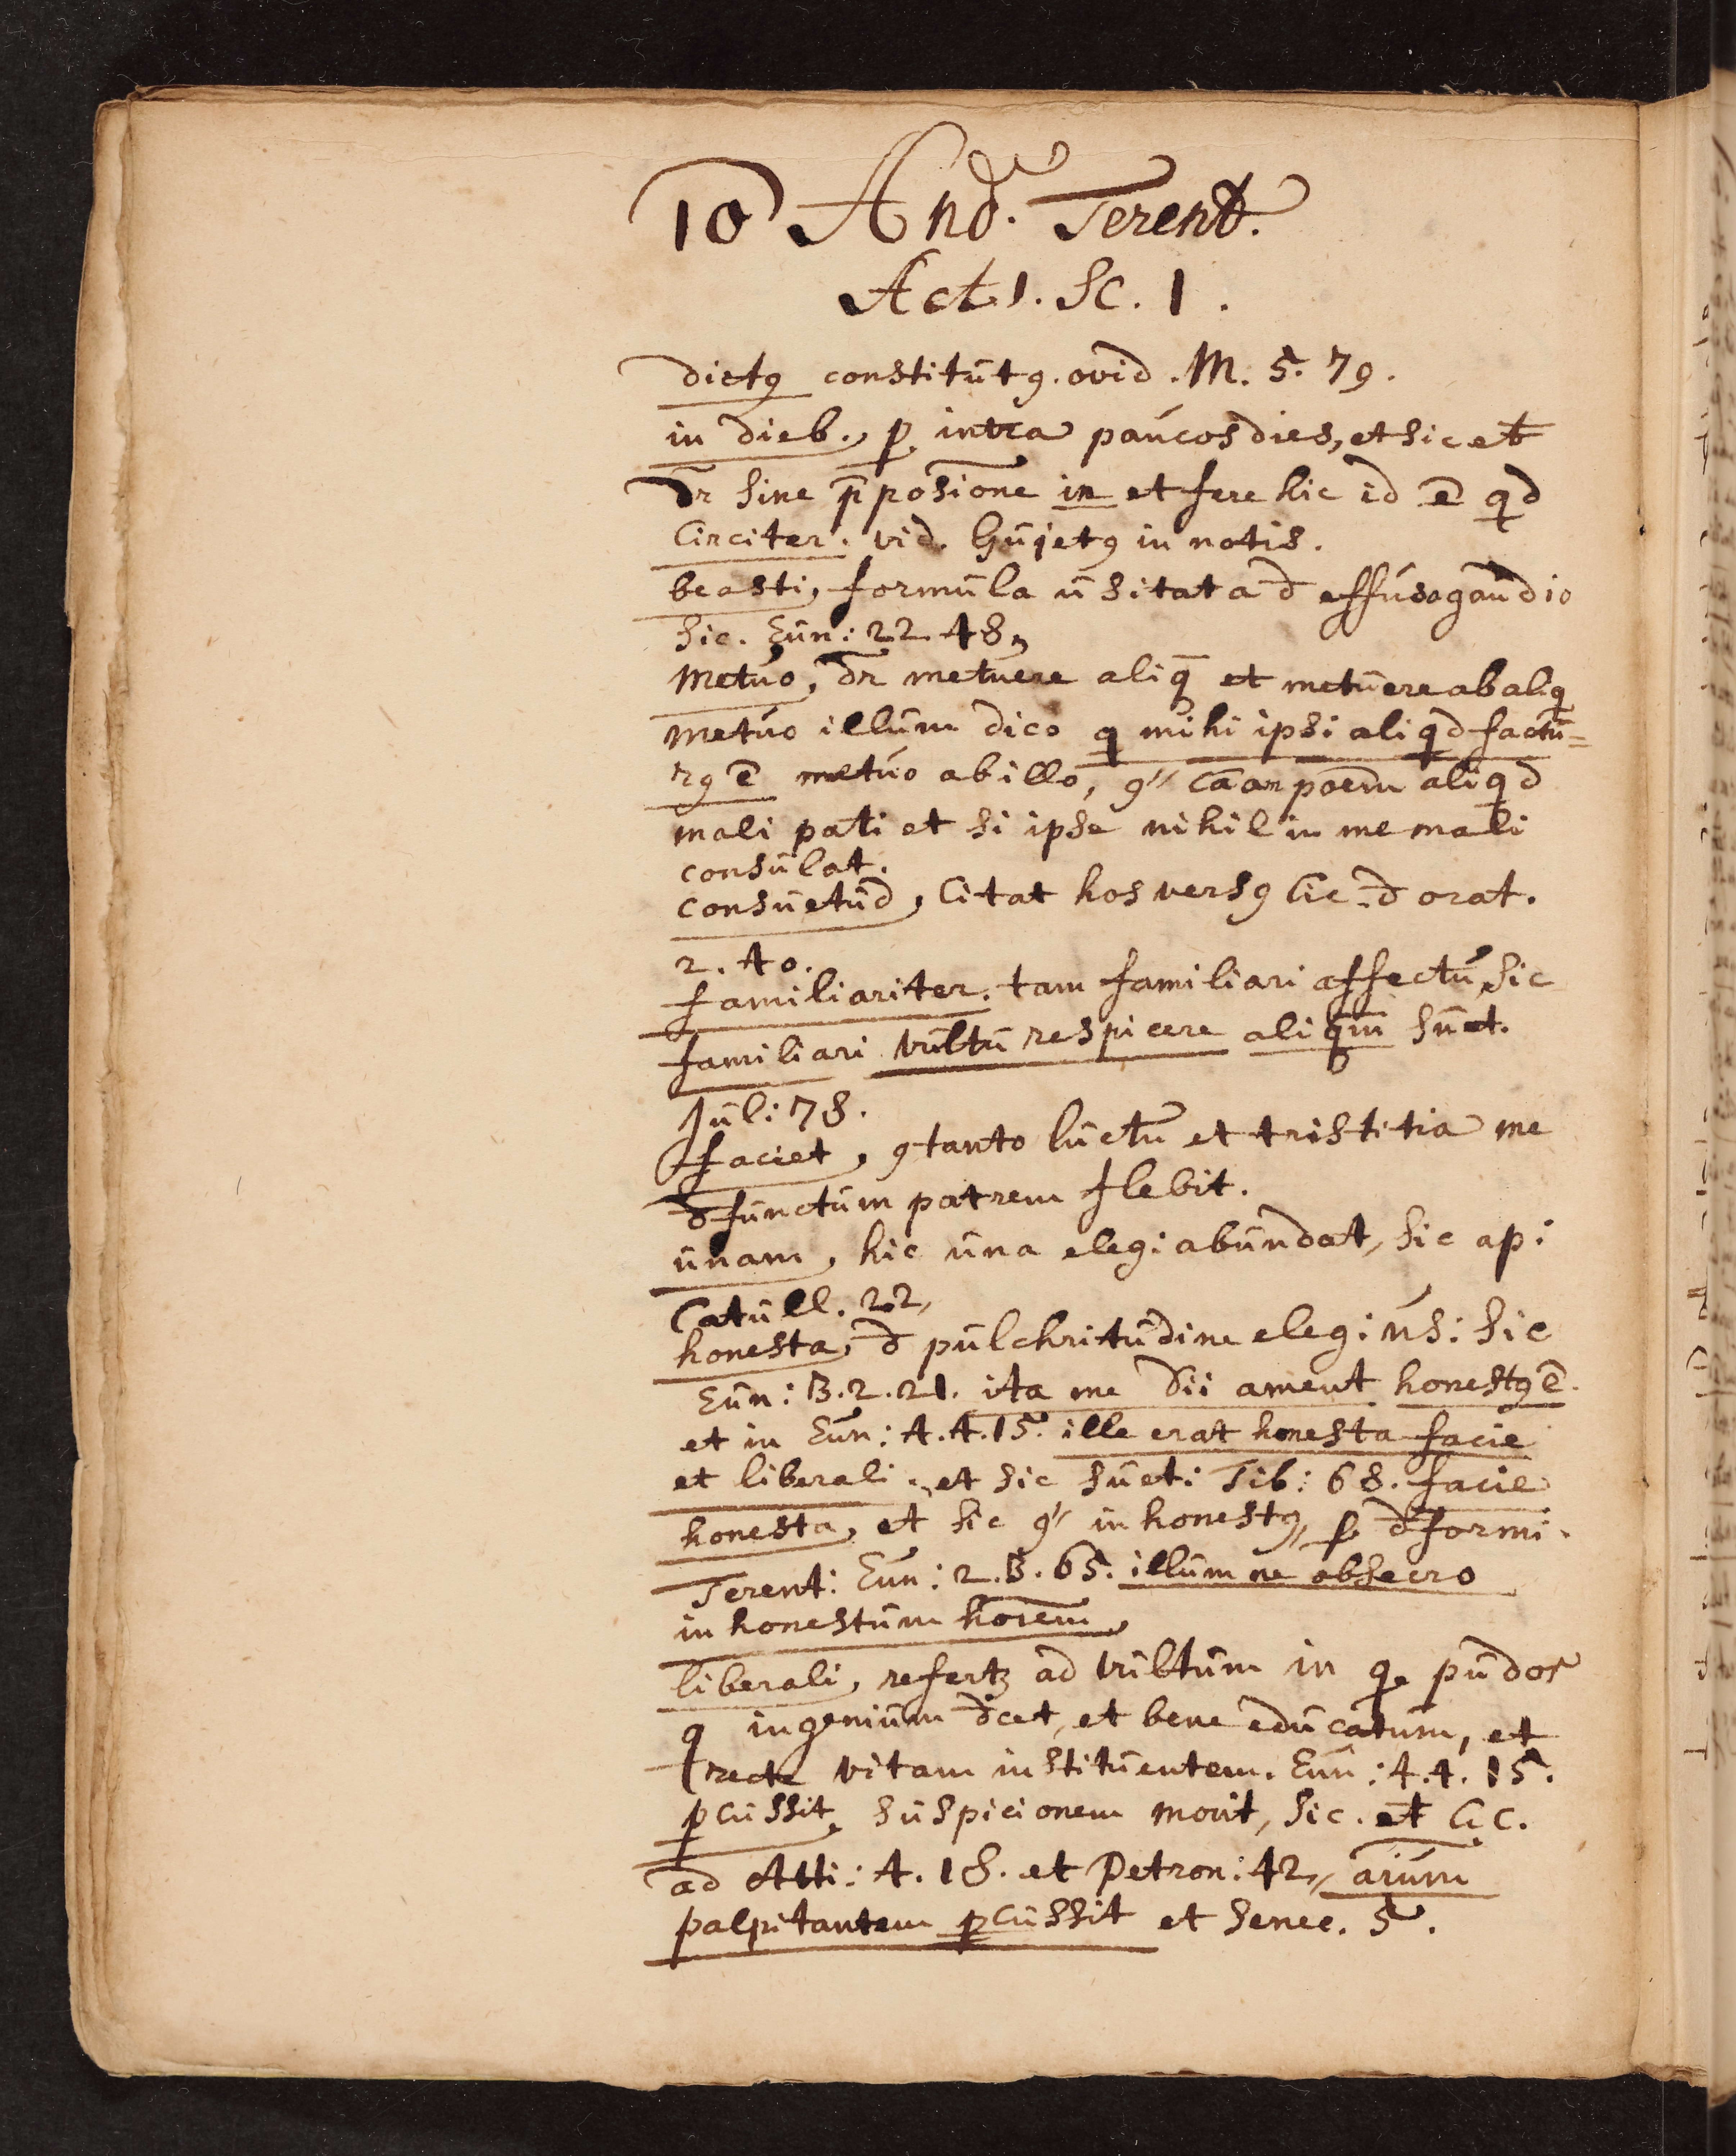 10 And. Terent.
Act. 1. Sc. 1.
dictꝰ constitūtꝰ. ovid. M. 5. 79.
in dieb., p intra paúcos dies, et sic et̄
dr̄ sine p̄posiōne in et fere hic id ē qd
Circiter. vid. Gūjetꝰ in notis.
beasti, formūla ūsitata đ effúso gaūdio
sic. Eūn: 22. 48,
Metúo, dr̄ metūere aliq̄ et metūere ab aliq
metúo illūm dico q mihi ipsi aliqd factū=
rꝰ ē metúo ab illo, ꝰ" cāan poēm aliqd
mali pati et si ipse nihil in me mali
consūlat.
consūetūd, Citat hos versꝰ Cic. đ orat.
2. 40.
familiariter. tam familiari affectū, sic
familiari vūltū respicere aliqm̄ sūet.
Jūl: 78.
faciet, ꝯtanto lūctū et tristitia me
đfūnctūm patrem flebit.
ūnam, hic ūna eleg: abūndat, sic ap:
Catūll. 22,
honesta, đ pūlchritūdine eleg: ūs: sic
Eūn: 3. 2. 21. ita me Dii ament honestꝰ ē.
et in Eūn: 4. 4. 15. ille erat honesta facie
et liberali. et sic sūet: Tib: 68. facie
honesta, et sic ꝰ" inhonestꝰ, p đformi.
Terent: Eūn: 2. 3. 65. illūm ne obsecro
inhonestūm hoīem,
liberali, refertꝫ ad vūltūm in q. pūdor
q ingeniūm đcet, et bene edūcatūm, et
recte vitam institūentem. Eūn: 4. 4. 15.
pcūssit, sūspicionem movit, sic. et̄ Cic.
ad Atti: 4. 18. et Petron: 42, aīūm
palpitantem pcūssit et Senec. 5.